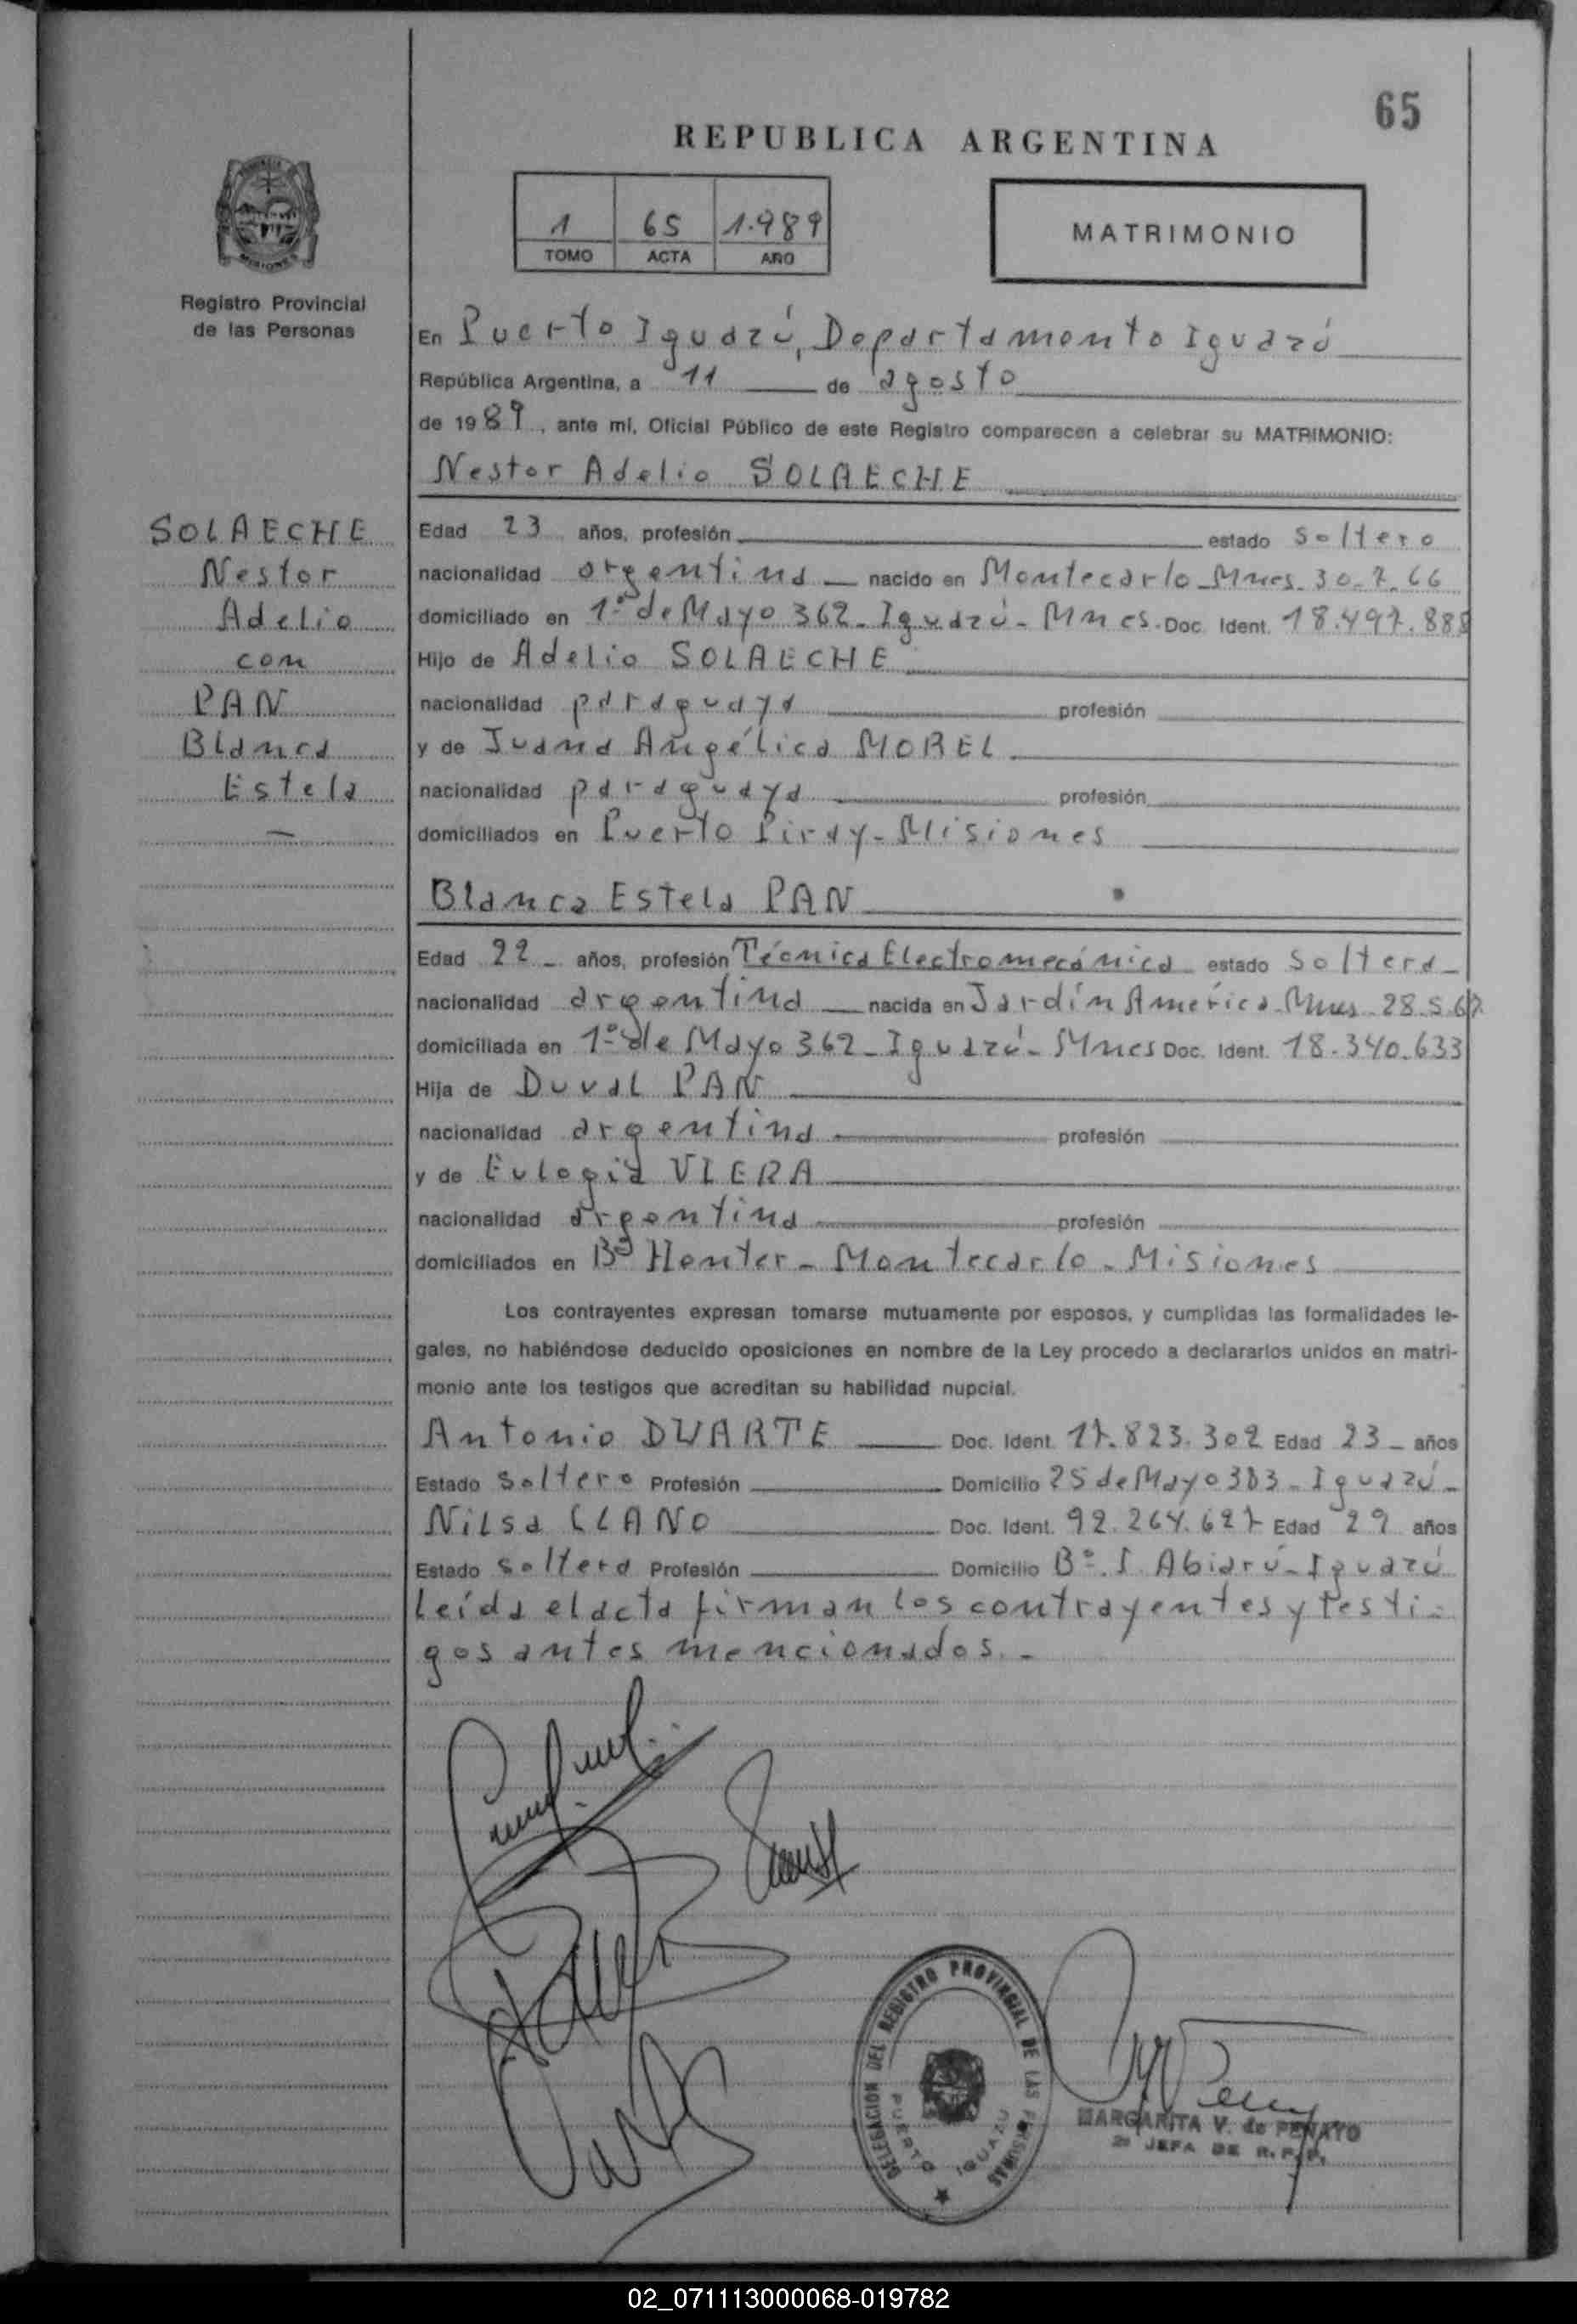 65
REPUBLICA ARGENTINA
1 65 1.989
TOMO ACTA AÑO
MATRIMONIO
MISIONES
Registro Provincial
de las Personas
En Puerto Iguazú, Departamento Iguazú
República Argentina, a 11 de agosto
de 1989, ante mí, Oficial Público de este Registro comparecen a celebrar su MATRIMONIO:
Nestor Adelio SOLAECHE
SOLAECHE
Nestor
Adelio
con
PAN
Blanca
Estela
—
Edad 23 años, profesión estado soltero
nacionalidad argentina nacido en Montecarlo-Mnes. 30.7.66
domiciliado en 1º de Mayo 362-Iguazú-Mnes. Doc. Ident. 18.497.888
Hijo de Adelio SOLAECHE
nacionalidad paraguaya profesión
y de Juana Angélica MOREL
nacionalidad paraguaya profesión
domiciliados en Puerto Piray-Misiones
Blanca Estela PAN
Edad 22 años, profesión Técnica Electromecánica estado soltera
nacionalidad argentina nacida en Jardín América-Mnes. 28.5.67
domiciliada en 1º de Mayo 362-Iguazú-Mnes Doc. Ident. 18.340.633
Hija de Duval PAN
nacionalidad argentina profesión
y de Eulogia VIERA
nacionalidad argentina profesión
domiciliados en Bº Henter-Montecarlo-Misiones
Los contrayentes expresan tomarse mutuamente por esposos, y cumplidas las formalidades le-
gales, no habiéndose deducido oposiciones en nombre de la Ley procedo a declararlos unidos en matri-
monio ante los testigos que acreditan su habilidad nupcial.
Antonio DUARTE Doc. Ident. 17.823.302 Edad 23 años
Estado soltero Profesión Domicilio 25 de Mayo 383-Iguazú-
Nilsa LLANO Doc. Ident. 92.264.627 Edad 29 años
Estado soltera Profesión Domicilio Bº. S. Abiarú-Iguazú
Leída el acta firman los contrayentes y testi-
gos antes mencionados.-
DELEGACION DEL REGISTRO PROVINCIAL DE LAS PERSONAS
PUERTO IGUAZU
MARGARITA V. de PENAYO
2ª JEFA DE R.P.P.
02_071113000068-019782